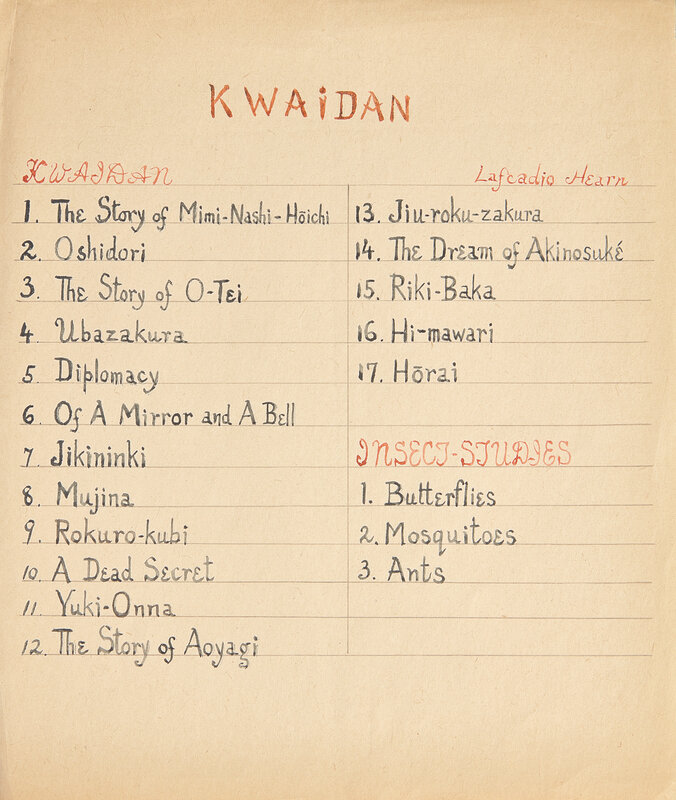 KWAiDAN
KWAIDAN
1. The Story of Mimi-Nashi-Hōichi
2. Oshidori
3. The Story of O-Tei
4 Ubazakura
5 Diplomacy
6 Of A Mirror and A Bell
7 Jikininki
8. Mujina
9. Rokuro-kubi
10 A Dead Secret
11 Yuki-Onna
12. The Story of Aoyagi
Lafcadio Hearn
13. Jiu-roku-zakura
14. The Dream of Akinosuké
15. Riki-Baka
16. Hi-mawari
17. Hōrai
INSECT-STUDIES
1. Butterflies
2. Mosquitoes
3. Ants